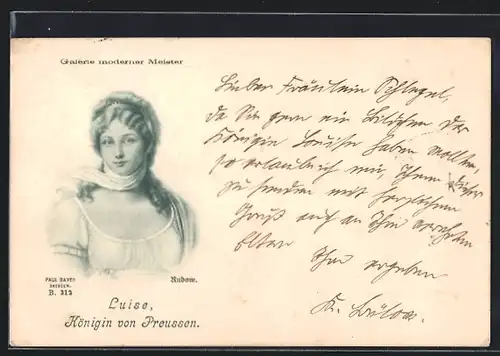 Galerie moderner Meister
Lieber Fräulein Schlegel,
da Sie gern ein Bildchen der
Königin Louise haben wollten,
so erlaube ich mir, Ihnen dieses
zu senden mit herzlichem
Gruß auch an Ihre verehrten
Eltern
Ihr ergebener
K. Bülow.
PAUL BAYER
DRESDEN
B. 312
Rudow.
Luise,
Königin von Preussen.